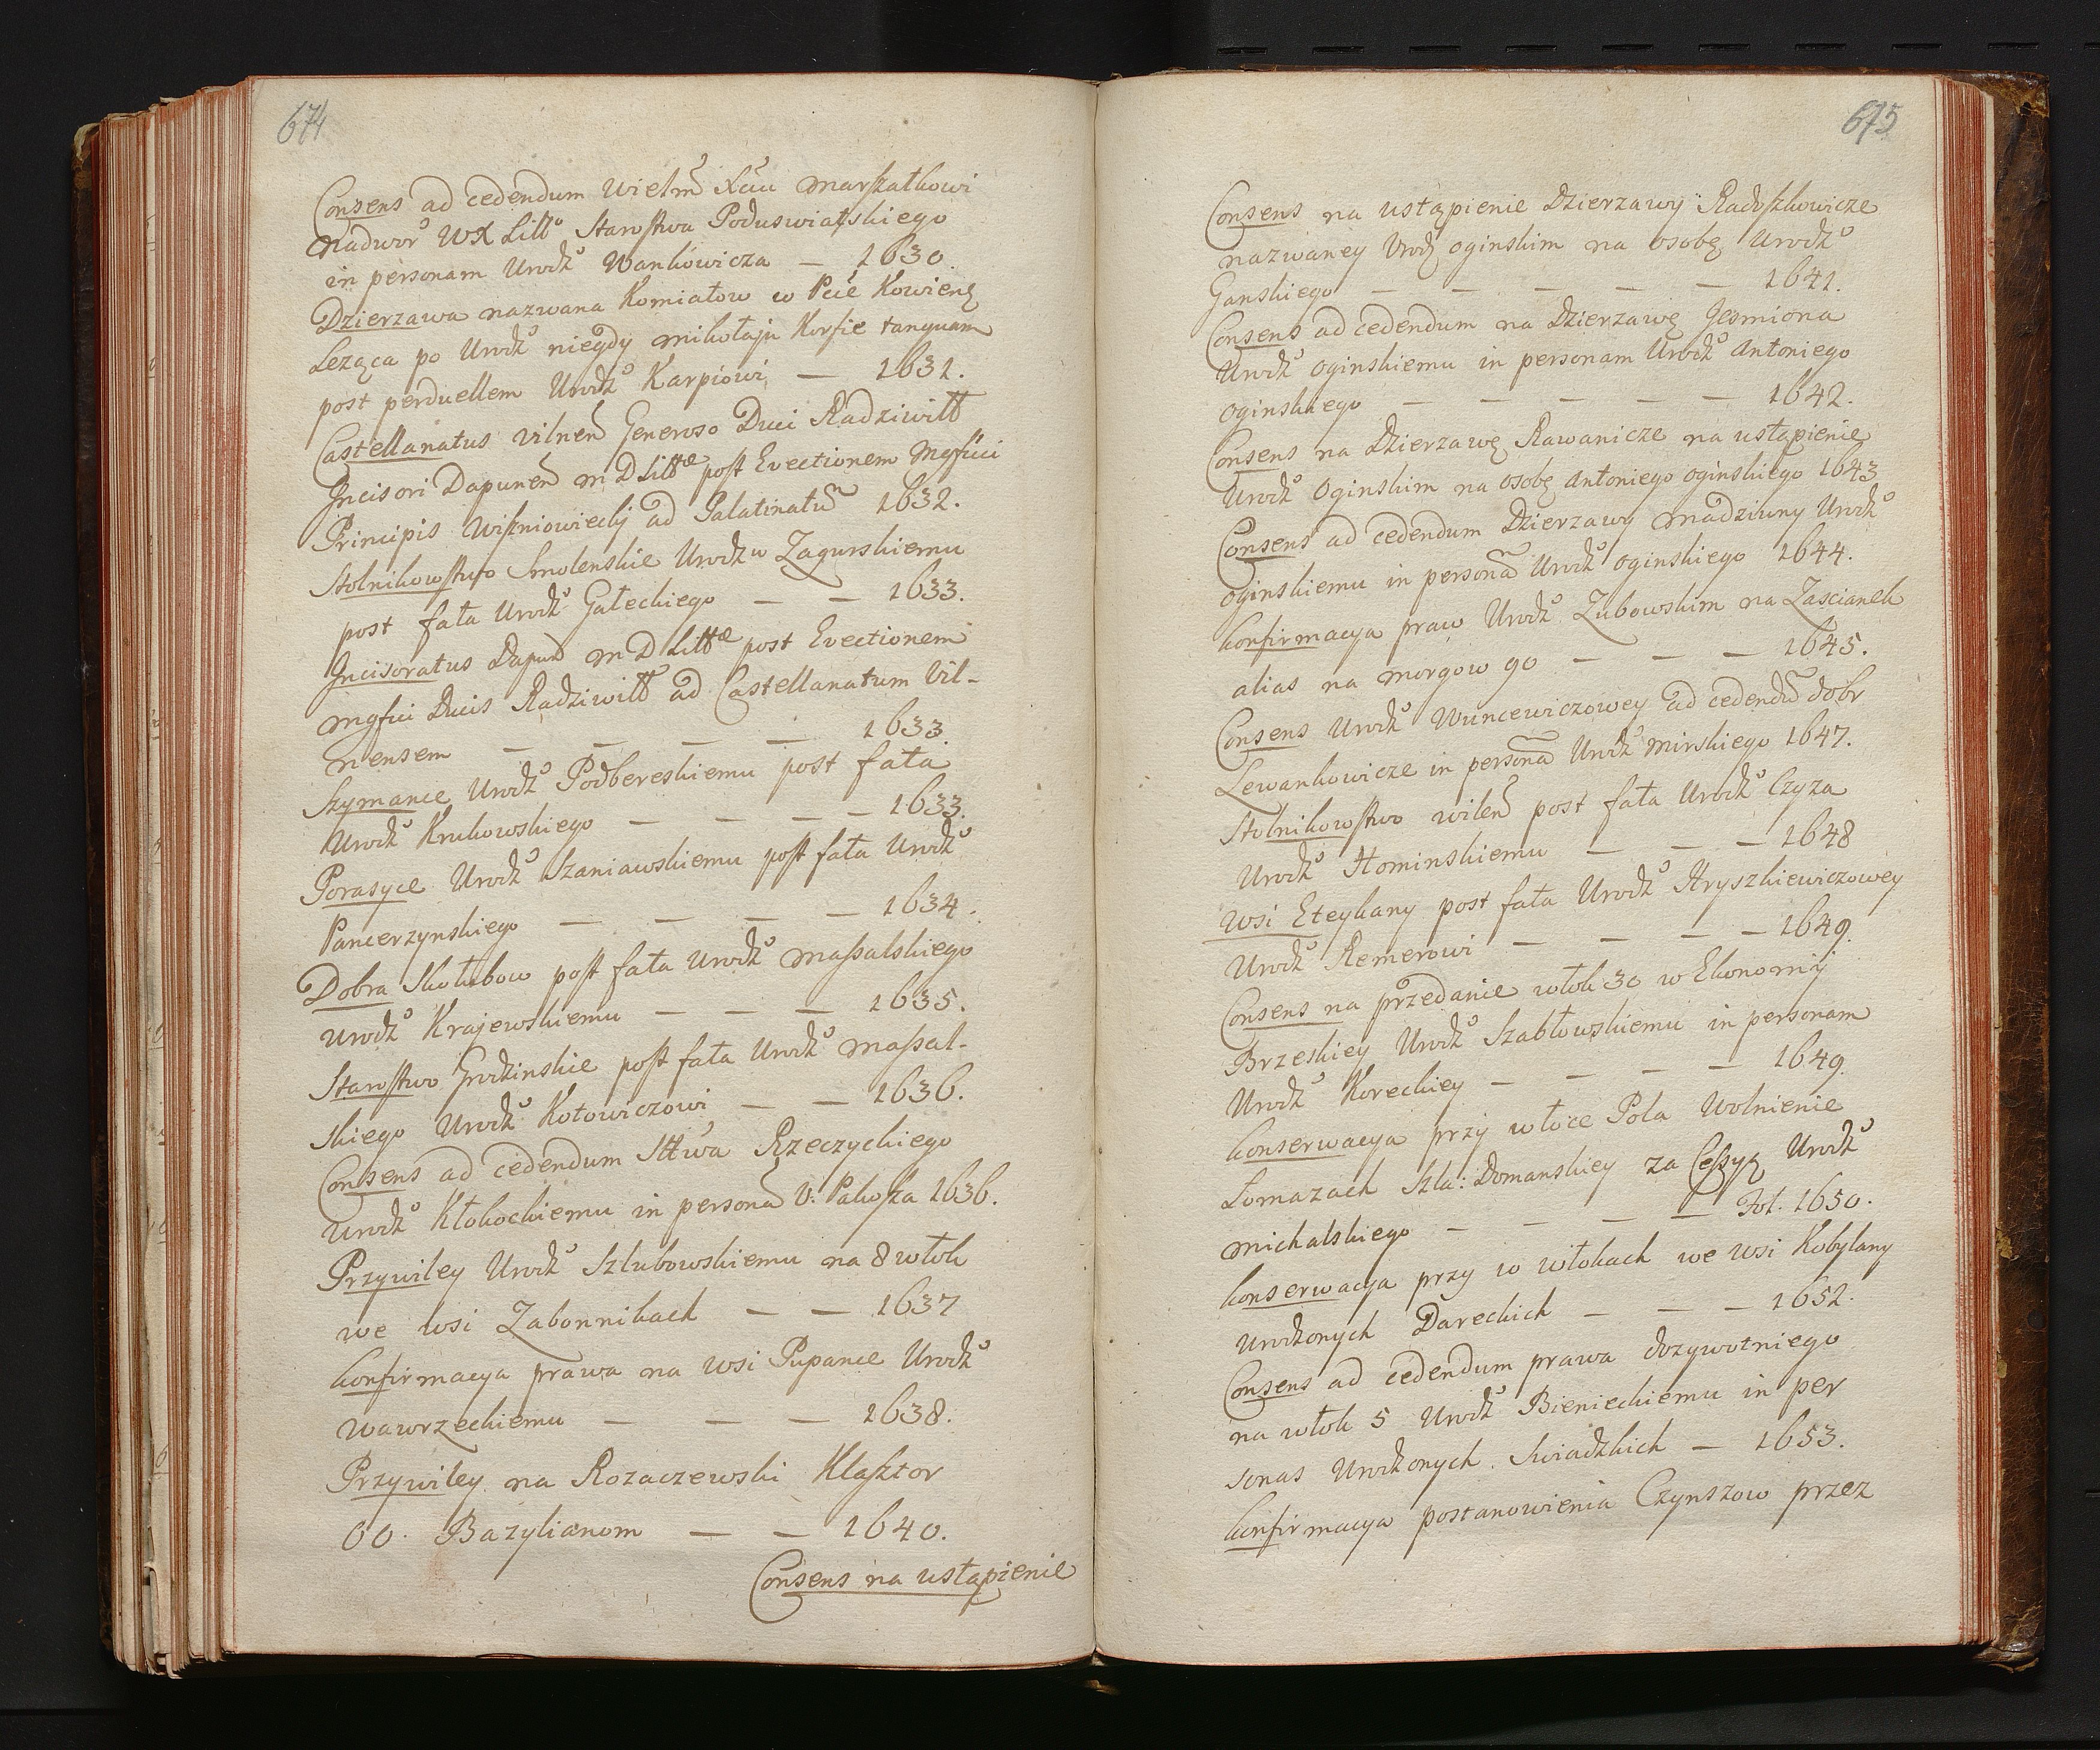 674
Consens ad cedendum Wielm̃ Xciu Marszałkowi
Nadwor° WX Litt° Starostwa Poduswiatskiego
in personam Urodz° Wankowicza — 1630.
Dzierzawa nazwana Komiatow w Pcie Kowienę
Leząca po Urodz° niegdy Mikołaju Korfie tanquam
post perduellem Urodz° Karpiowi — 1631.
Castellanatus Vilneñ Generoso Duci Radziwiłł
Incisori Dapuneñ M D Littæ post Evectionem Mgfici
Principis Wiszniowiecÿ ad Palatinatũ 1632.
Stolnikowstwo Smolenskie Urodzu Zagurskiemu
post fata Urodz° Gałeckiego — — 1633.
Incisoratus Dapuñ M D Littæ post Evectionem
Mgfici Ducis Radziwiłł ad Castellanatum Vil-
nensem — — — — 1633.
Szymance Urodz° Podbereskiemu post fata
Urodz° Krukowskiego — — — — 1633.
Porasyce Urodz° Szaniawskiemu post fata Urodz°
Pancerzynskiego — — — — 1634.
Dobra Skołubow post fata Urodz° Massalskiego
Urodz° Krajewskiemu — — — 1635.
Starostwo Grodzinskie post fata Urodz° Massal-
skiego Urodz° Kotowiczowi — — 1636.
Consens ad cedendum Sttwa Rzeczyckiego
Urodz° Kłokockiemu in personã U: Pakosza 1636.
Przywiley Urodz° Szlubowskiemu na 8 włok
we wsi Zabonnikach — — 1637
Konfirmacya prawa na wsi Pupance Urodz°
Wawrzeckiemu — — — 1638.
Przywiley na Rozaczewski Klasztor
OO. Bazylianom — — 1640.
Consens na ustąpienie
675
Consens na ustąpienie Dzierzawy Radoszkowicze
nazwaney Urodz Oginskim na osobę Urodz°
Ganskiego — — — — — 1641.
Consens ad cedendum na Dzierzawę Jesmiona
Urodz° Oginskiemu in personam Urodz° Antoniego
Oginskiego — — — — — 1642.
Consens na Dzierzawę Rawanicze na ustąpienie
Urodz° Oginskim na osobę Antoniego Oginskiego 1643
Consens ad cedendum Dzierzawy Madziuny Urodz°
Oginskiemu in personã Urodz° Oginskiego 1644.
Konfirmacya praw Urodz° Zubowskim na Zascianek
alias na morgow 90 — — — 1645.
Consens Urodz° Wuncewiczowey ad cedendũ dobr
Lewankowicze in personã Urodz° Mirskiego 1647.
Stolnikowstwo wileñ post fata Urodz° Czyza
Urodz° Hominskiemu — — — 1648
Wsi Eteykany post fata Urodz° Hryszkiewiczowey
Urodz° Remerowi — — — — 1649.
Consens na przedanie włok 30 w Ekonomÿ
Brzeskiey Urodz° Szabłowskiemu in personam
Urodz° Koreckiey — — — — 1649.
Konserwacya przy włoce Pola Wolnienie
Łomazach Szla: Domanskiey za Cessyą Urodz°
Michalskiego — — — — Fol. 1650.
Konserwacya przy w włokach we wsi Kobylany
Urodzonych Dareckich — — — 1652.
Consens ad cedendum prawa dozywotniego
na włok 5 Urodz° Bienieckiemu in per
sonas Urodzonych Swiadzkich — 1653.
Konfirmacya postanowienia Czynszow przez